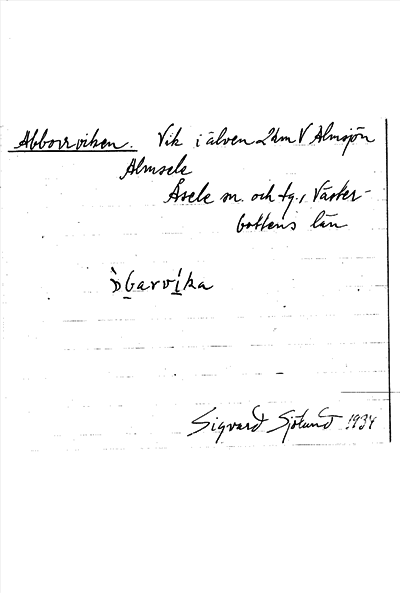 Abborrviken. Vik i älven 2 km V Almsjön
Almsele
Åsele sn. och tg., Väster-
bottens län
Sigvard Sjölund 1934